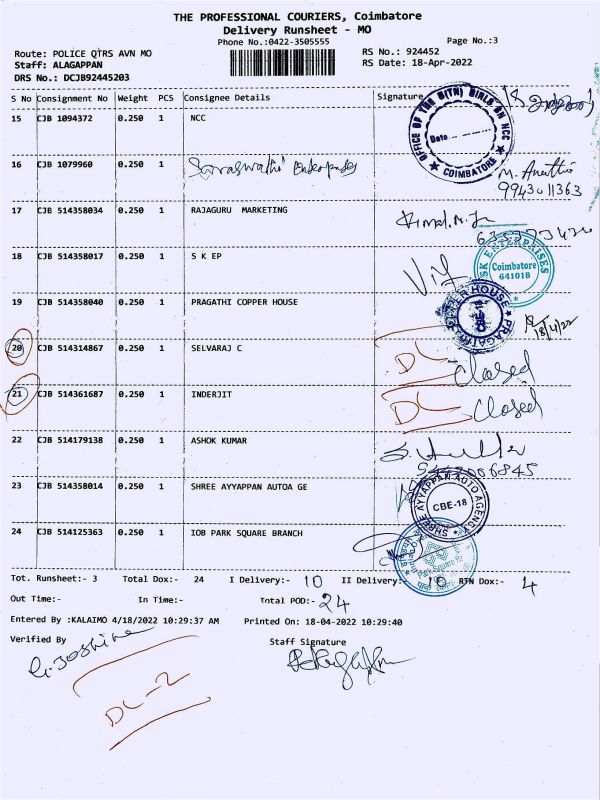 THE PROFESSIONAL COURIERS, Coimbatore
Delivery Runsheet - MO
Phone No.:0422-3505555
Page No.:3
Route: POLICE QTRS AVN MO
RS No.: 924452
Staff: ALAGAPPAN
RS Date: 18-Apr-2022
DRS No.: DCJB92445203
S No Consignment No Weight PCS Consignee Details Signature
15 CJB 1094372 0.250 1 NCC
OFFICE OF COIMBATORE
Date
16 CJB 1079960 0.250 1 Saraswathi Enterprises
9943011363
17 CJB 514358034 0.250 1 RAJAGURU MARKETING
18 CJB 514358017 0.250 1 S K EP
SK ENTERPRISES
Coimbatore
641018
19 CJB 514358040 0.250 1 PRAGATHI COPPER HOUSE
CBE-18
18/4/22
20 CJB 514314867 0.250 1 SELVARAJ C DL Closed
21 CJB 514361687 0.250 1 INDERJIT DL Closed
22 CJB 514179138 0.250 1 ASHOK KUMAR
23 CJB 514358014 0.250 1 SHREE AYYAPPAN AUTOA GE
SHREE AYYAPPAN AUTO AGENCY
CBE-18
24 CJB 514125363 0.250 1 IOB PARK SQUARE BRANCH
Tot. Runsheet:- 3 Total Dox:- 24 I Delivery:- 10 II Delivery:- 10 RTN Dox:- 4
Out Time:- In Time:- Total POD:- 24
Entered By :KALAIMO 4/18/2022 10:29:37 AM Printed On: 18-04-2022 10:29:40
Verified By Staff Signature
DL-2